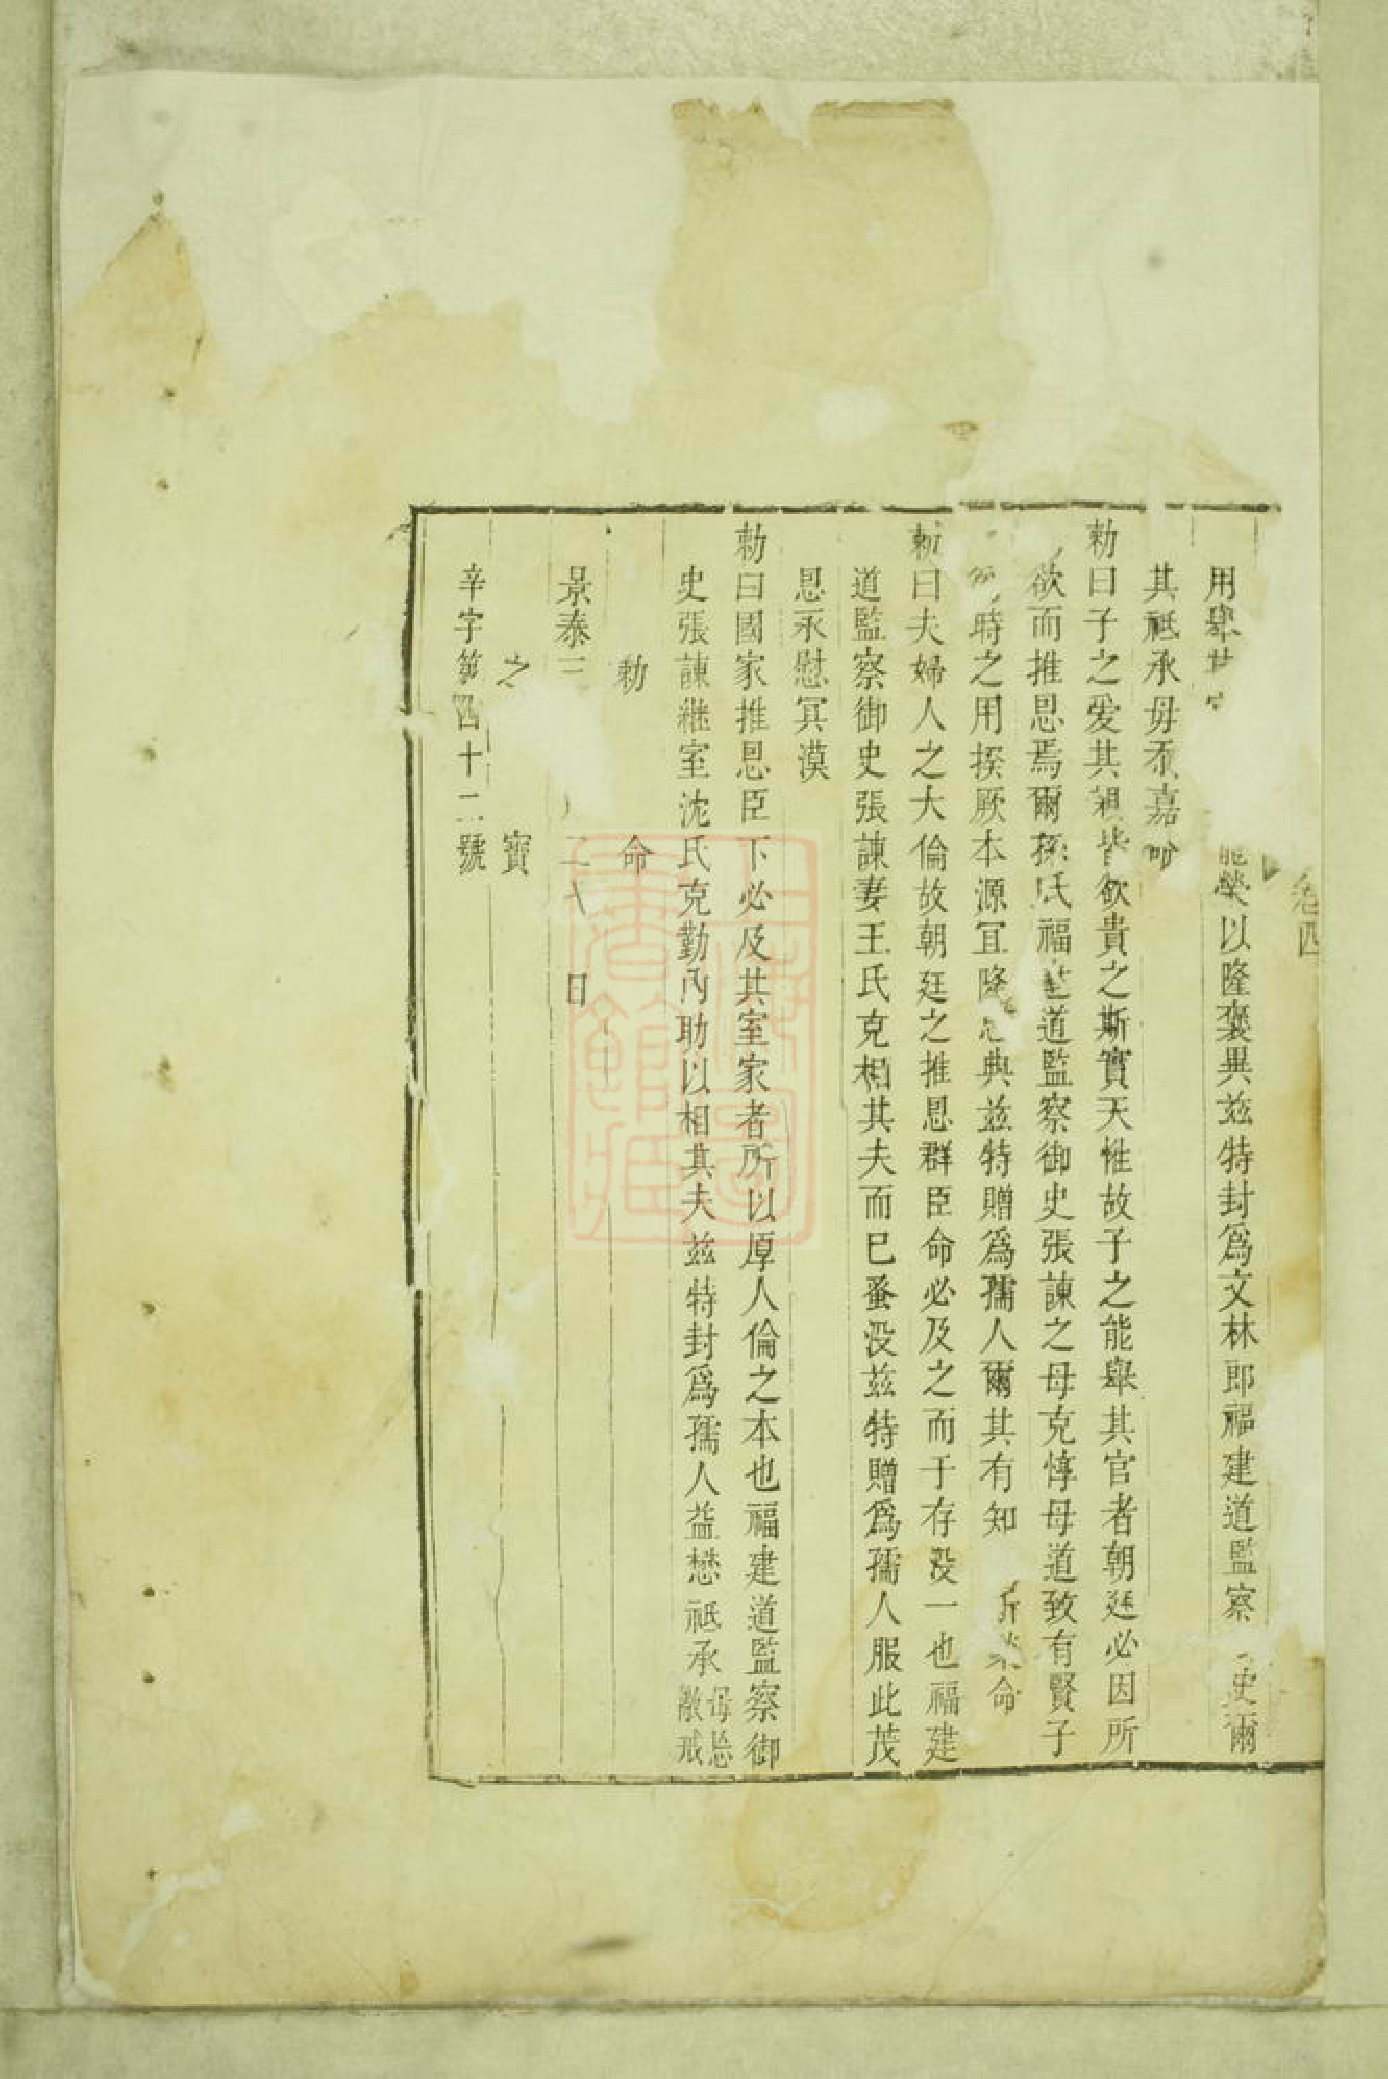 卷四
用舉
榮以隆褒異茲特封爲文林郎福建道監察史爾
其祗承毋忝嘉命
勅曰子之愛其親皆欲貴之斯實天性故子之能舉其官者朝廷必因所
欲而推恩焉爾孫氏福建道監察御史張諫之母克惇母道致有賢子
時之用揆厥本源宜隆恩典茲特贈爲孺人爾其有知命
勅曰夫婦人之大倫故朝廷之推恩群臣命必及之而于存沒一也福建
道監察御史張諫妻王氏克相其夫而已蚤沒茲特贈爲孺人服此茂
恩永慰冥漠
勅曰國家推恩臣下必及其室家者所以厚人倫之本也福建道監察御
史張諫継室沈氏克勤內助以相其夫茲特封爲孺人益懋祗承毋怠
敬戒
勅命
景泰三二日
之寶
辛字第四十二號
上海圖書館藏